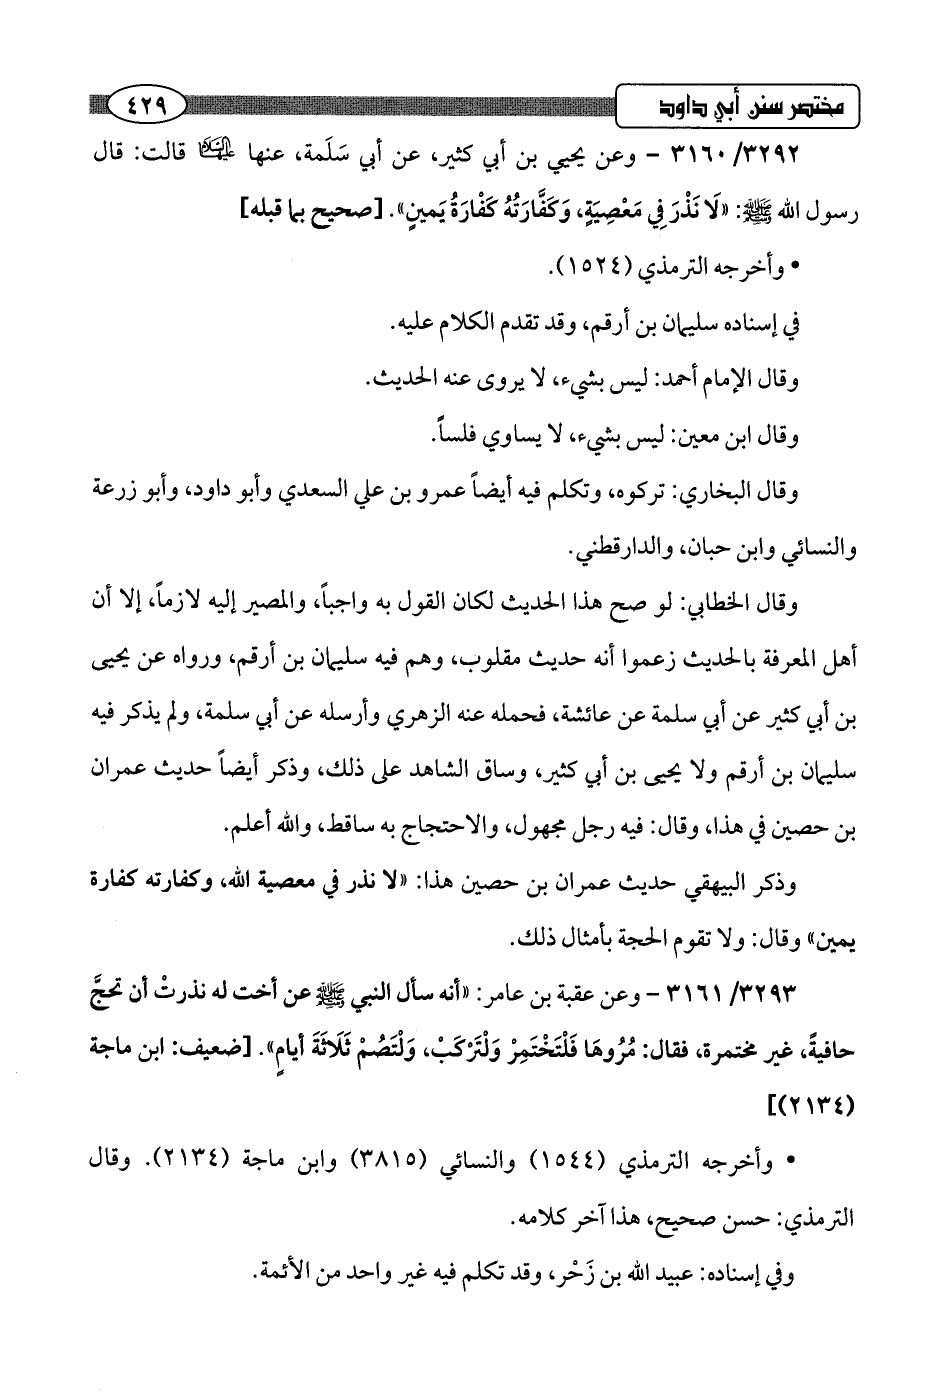 مختصر سنن أبي داود
٤٢٩
٣١٦٠/٣٢٩٢ - وعن يحيي بن أبي كثير، عن أبي سَلَمة، عنها عليها السلام قالت: قال
رسول الله ﷺ: «لَا نَذْرَ فِي مَعْصِيَةٍ، وَكَفَّارَتُهُ كَفْارَةُ يَمينٍ». [صحيح بما قبله]
• وأخرجه الترمذي (١٥٢٤).
في إسناده سليمان بن أرقم، وقد تقدم الكلام عليه.
وقال الإمام أحمد: ليس بشيء، لا يروى عنه الحديث.
وقال ابن معين: ليس بشيء، لا يساوي فلساً.
وقال البخاري: تركوه، وتكلم فيه أيضاً عمرو بن علي السعدي وأبو داود، وأبو زرعة
والنسائي وابن حبان، والدارقطني.
وقال الخطابي: لو صح هذا الحديث لكان القول به واجباً، والمصير إليه لازماً، إلا أن
أهل المعرفة بالحديث زعموا أنه حديث مقلوب، وهم فيه سليمان بن أرقم، ورواه عن يحيى
بن أبي كثير عن أبي سلمة عن عائشة، فحمله عنه الزهري وأرسله عن أبي سلمة، ولم يذكر فيه
سليمان بن أرقم ولا يحيى بن أبي كثير، وساق الشاهد على ذلك، وذكر أيضاً حديث عمران
بن حصين في هذا، وقال: فيه رجل مجهول، والاحتجاج به ساقط، والله أعلم.
وذكر البيهقي حديث عمران بن حصين هذا: «لا نذر في معصية الله، وكفارته كفارة
يمين» وقال: ولا تقوم الحجة بأمثال ذلك.
٣١٦١/٣٢٩٣ - وعن عقبة بن عامر: «أنه سأل النبي ﷺ عن أخت له نذرتْ أن تحجَّ
حافيةً، غير مختمرة، فقال: مُرُوهَا فَلْتَخْتَمِرْ وَلْتَرْكَبْ، وَلْتَصُمْ ثَلَاثَةَ أيامٍ». [ضعيف: ابن ماجة
(٢١٣٤)]
• وأخرجه الترمذي (١٥٤٤) والنسائي (٣٨١٥) وابن ماجة (٢١٣٤). وقال
الترمذي: حسن صحيح، هذا آخر كلامه.
وفي إسناده: عبيد الله بن زَحْر، وقد تكلم فيه غير واحد من الأئمة.